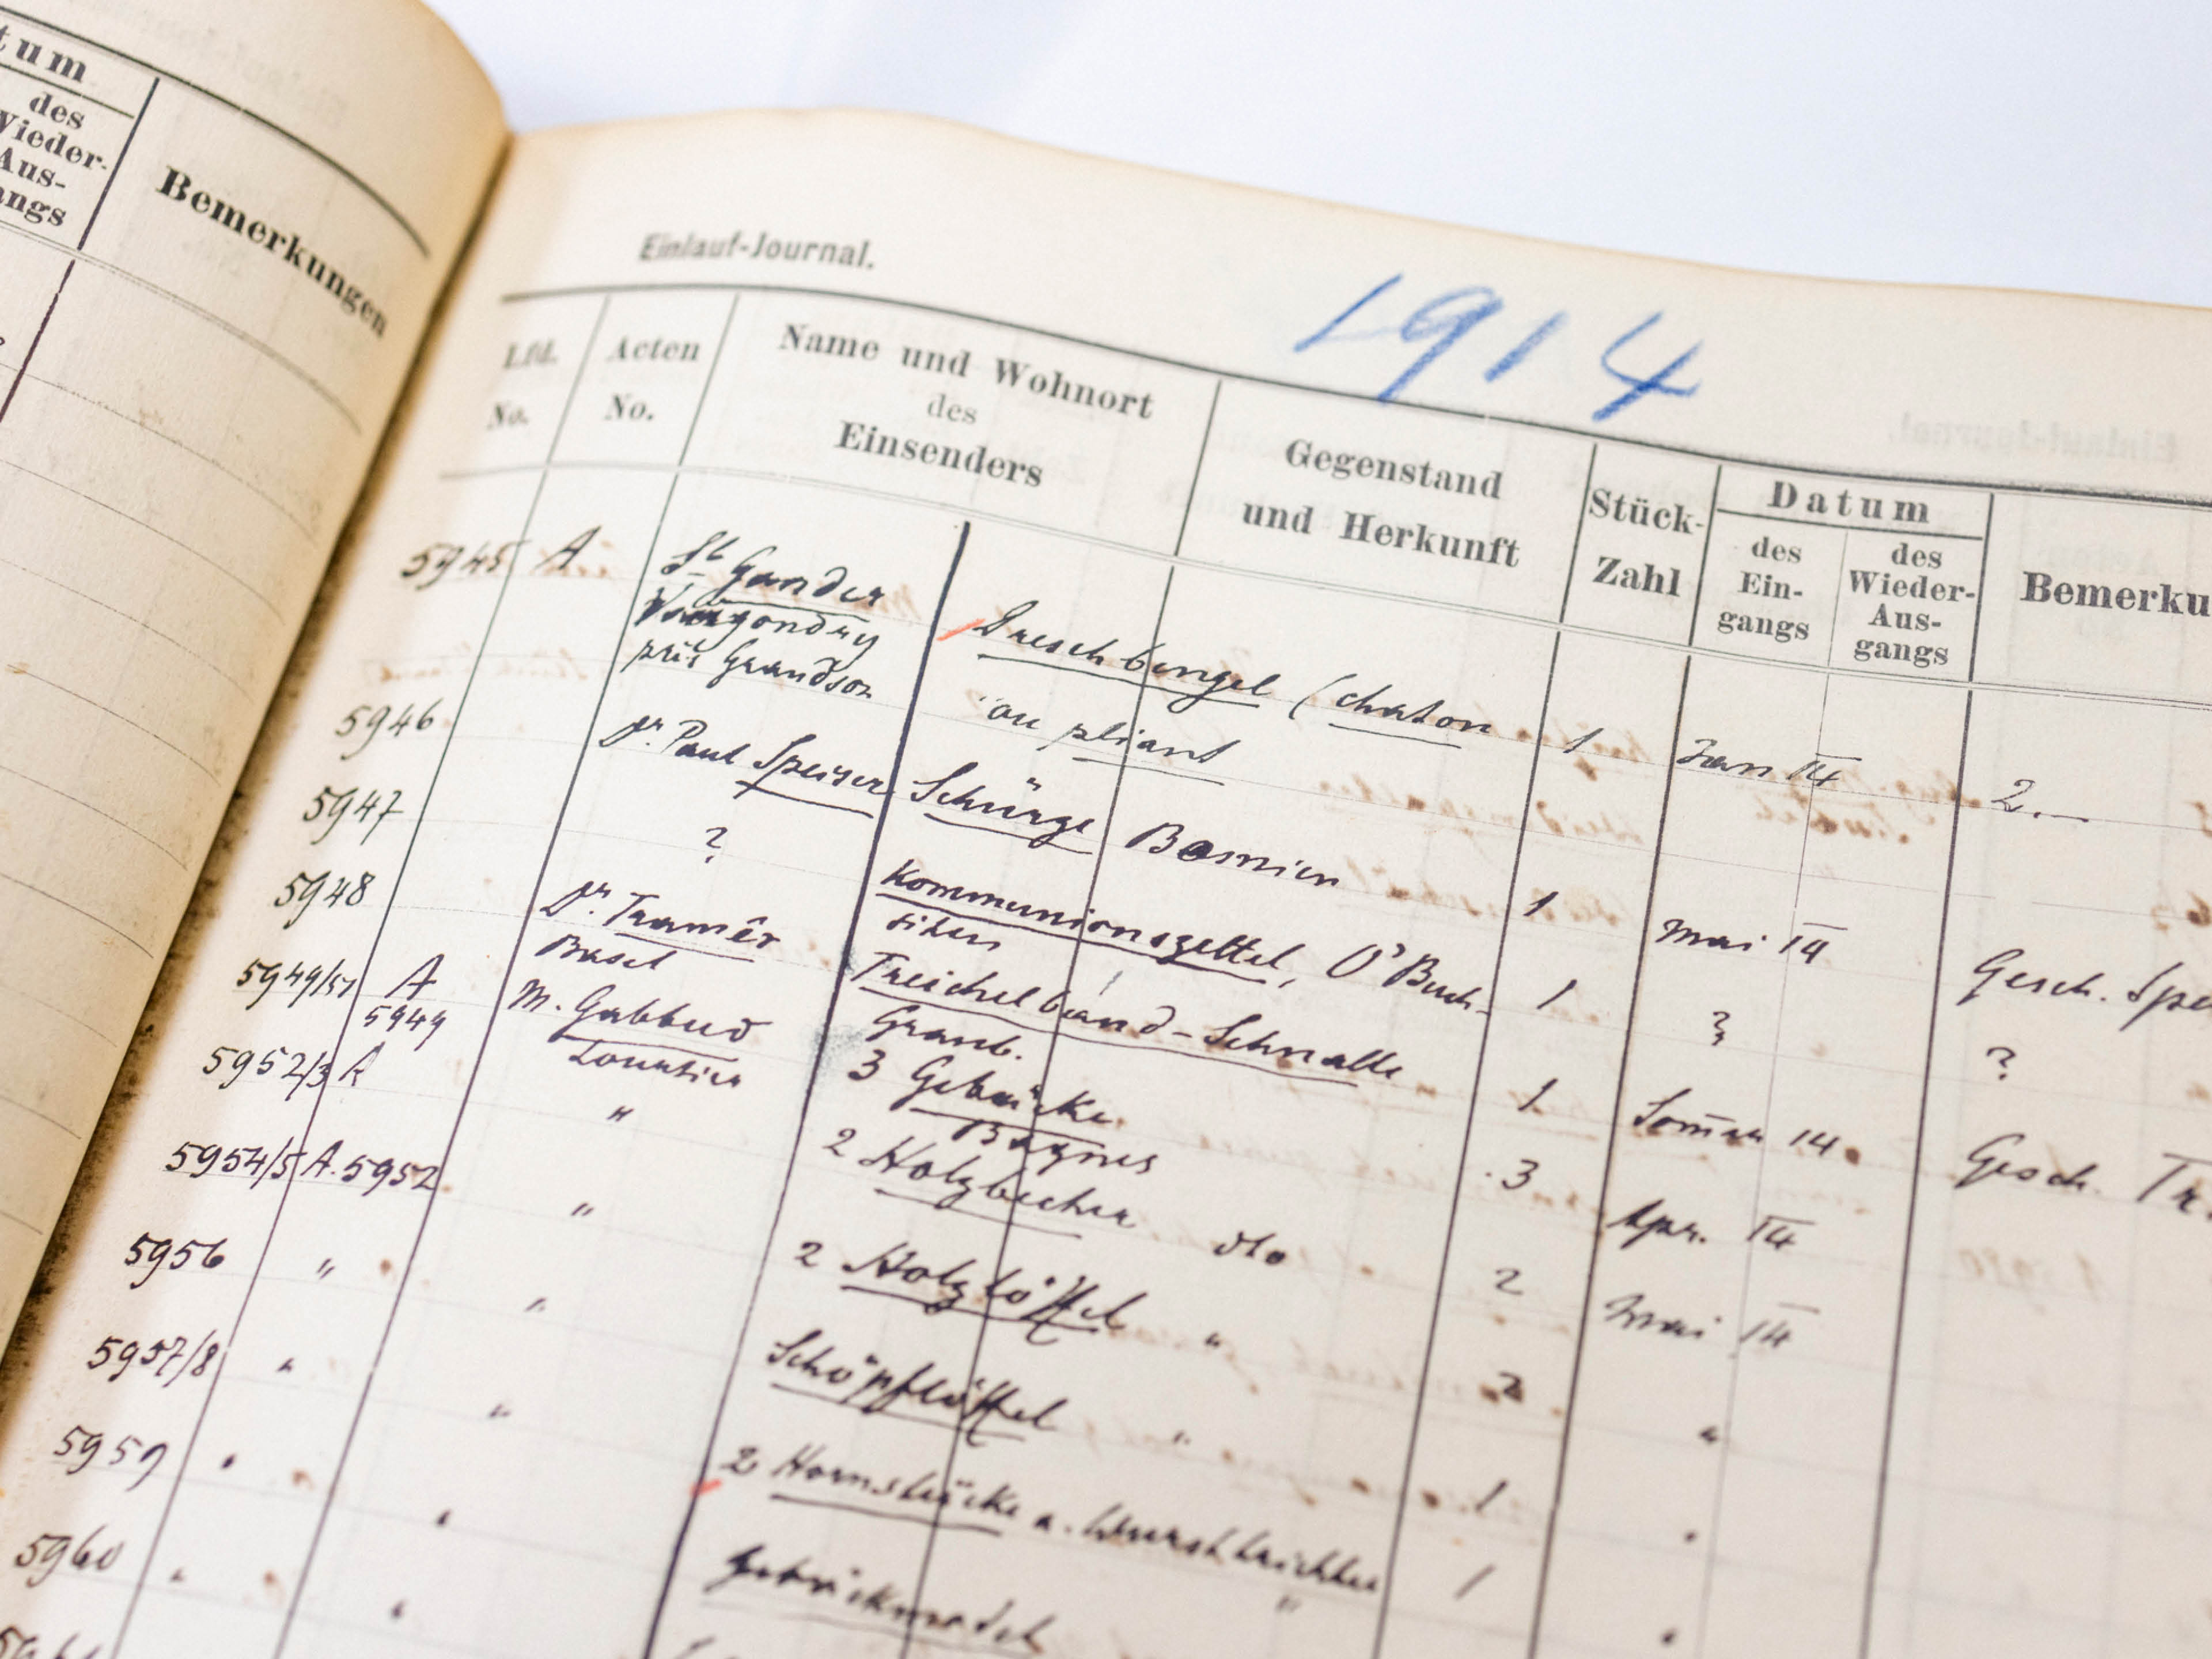 tum
des
Wieder-
Aus-
angs
Bemerkungen
Einlauf-Journal.
1914
Lfd.
No.
Acten
No.
Name und Wohnort
des
Einsenders
Gegenstand
und Herkunft
Stück-
Zahl
Datum
des
Ein-
gangs
des
Wieder-
Aus-
gangs
Bemerku
5945 A St Gander
Vaugondry
près Grandson
Dreschbengel (chaton
ou pliant 1 Jan 14 2.—
5946 Dr. Paul Speiser Schürze Bosnien 1 Mai 14 Gesch. Spe
5947 ? Kommunionszettel, O' Buch-
siten 1 ? ?
5948 Dr. Tramêr
Basel
Treichelband-Schnalle
Graub. 1 Sommer 14. Gesch. Tr.
5949/51 A
5949
M. Gabbud
Lourtier
3 Gebäcke
Bagnes 3 Apr. 14
5952/3 A " 2 Holzbecher dto 2 Mai 14
5954/5 A. 5952 " 2 Holzlöffel " 2 "
5956 " " Schöpflöffel " 1 "
5957/8 " " 2 Hornstücke a. Wursttrichter " 1 "
5959 " "
5960 " "